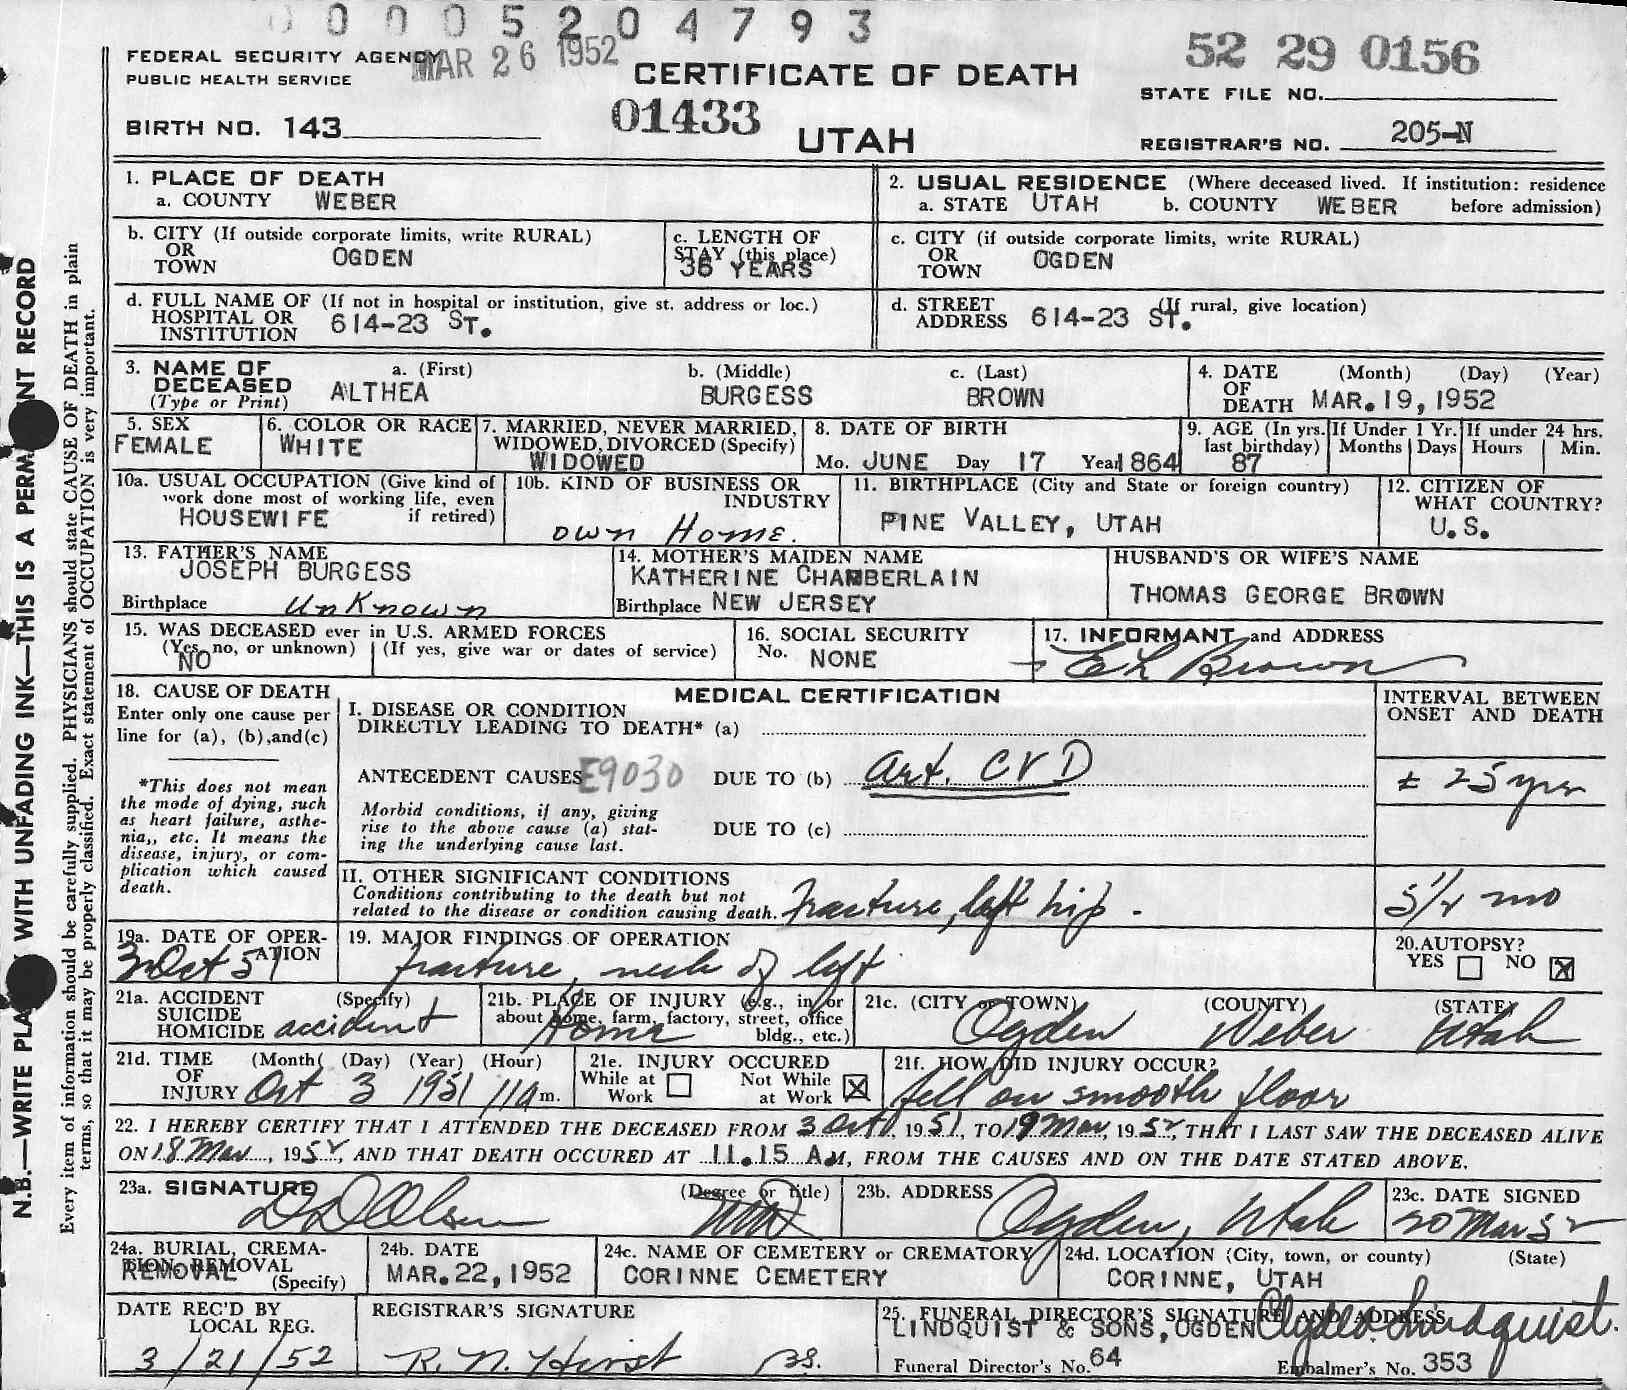 0 0 0 0 5 2 0 4 7 9 3
FEDERAL SECURITY AGENCY
PUBLIC HEALTH SERVICE
MAR 26 1952
CERTIFICATE OF DEATH
52 29 0156
STATE FILE NO.
BIRTH NO. 143
01433
UTAH
REGISTRAR'S NO. 205-N
1. PLACE OF DEATH
a. COUNTY WEBER
2. USUAL RESIDENCE (Where deceased lived. If institution: residence
a. STATE UTAH b. COUNTY WEBER before admission)
b. CITY (If outside corporate limits, write RURAL)
OR
TOWN OGDEN
c. LENGTH OF
STAY (this place)
36 YEARS
c. CITY (if outside corporate limits, write RURAL)
OR
TOWN OGDEN
d. FULL NAME OF (If not in hospital or institution, give st. address or loc.)
HOSPITAL OR
INSTITUTION 614-23 ST.
d. STREET (If rural, give location)
ADDRESS 614-23 ST.
3. NAME OF
DECEASED
(Type or Print)
a. (First) b. (Middle) c. (Last)
ALTHEA BURGESS BROWN
4. DATE (Month) (Day) (Year)
OF
DEATH MAR. 19, 1952
5. SEX
FEMALE
6. COLOR OR RACE
WHITE
7. MARRIED, NEVER MARRIED,
WIDOWED, DIVORCED (Specify)
WIDOWED
8. DATE OF BIRTH
Mo. JUNE Day 17 Year 1864
9. AGE (In yrs.
last birthday)
87
If Under 1 Yr.
Months Days
If under 24 hrs.
Hours Min.
10a. USUAL OCCUPATION (Give kind of
work done most of working life, even
if retired)
HOUSEWIFE
10b. KIND OF BUSINESS OR
INDUSTRY
own Home.
11. BIRTHPLACE (City and State or foreign country)
PINE VALLEY, UTAH
12. CITIZEN OF
WHAT COUNTRY?
U.S.
13. FATHER'S NAME
JOSEPH BURGESS
Birthplace Unknown
14. MOTHER'S MAIDEN NAME
KATHERINE CHAMBERLAIN
Birthplace NEW JERSEY
HUSBAND'S OR WIFE'S NAME
THOMAS GEORGE BROWN
15. WAS DECEASED ever in U.S. ARMED FORCES
(Yes, no, or unknown) (If yes, give war or dates of service)
NO
16. SOCIAL SECURITY
No. NONE
17. INFORMANT and ADDRESS
E L Brown
18. CAUSE OF DEATH
Enter only one cause per
line for (a), (b), and (c)
*This does not mean
the mode of dying, such
as heart failure, asthe-
nia,, etc. It means the
disease, injury, or com-
plication which caused
death.
MEDICAL CERTIFICATION
INTERVAL BETWEEN
ONSET AND DEATH
I. DISEASE OR CONDITION
DIRECTLY LEADING TO DEATH* (a)
ANTECEDENT CAUSES E9030 DUE TO (b) art. CVD
± 25 yrs
Morbid conditions, if any, giving
rise to the above cause (a) stat-
ing the underlying cause last.
DUE TO (c)
II. OTHER SIGNIFICANT CONDITIONS
Conditions contributing to the death but not
related to the disease or condition causing death. fracture, left hip.
5 1/2 mo
19a. DATE OF OPER-
ATION
3 Oct 51
19. MAJOR FINDINGS OF OPERATION
fracture, neck of left
20. AUTOPSY?
YES NO X
21a. ACCIDENT (Specify)
SUICIDE
HOMICIDE accident
21b. PLACE OF INJURY (e.g., in or
about home, farm, factory, street, office
bldg., etc.)
Home
21c. (CITY or TOWN) (COUNTY) (STATE)
Ogden Weber Utah
21d. TIME (Month( (Day) (Year) (Hour)
OF
INJURY Oct 3 1951 11a m.
21e. INJURY OCCURED
While at Work Not While at Work X
21f. HOW DID INJURY OCCUR?
fell on smooth floor
22. I HEREBY CERTIFY THAT I ATTENDED THE DECEASED FROM 3 Oct, 1951, TO 19 Mar, 1952, THAT I LAST SAW THE DECEASED ALIVE
ON 18 Mar, 1952, AND THAT DEATH OCCURED AT 11.15 A.M, FROM THE CAUSES AND ON THE DATE STATED ABOVE.
23a. SIGNATURE (Degree or title)
D D Olsen MD
23b. ADDRESS
Ogden, Utah
23c. DATE SIGNED
20 Mar 52
24a. BURIAL, CREMA-
TION, REMOVAL
(Specify)
REMOVAL
24b. DATE
MAR. 22, 1952
24c. NAME OF CEMETERY or CREMATORY
CORINNE CEMETERY
24d. LOCATION (City, town, or county) (State)
CORINNE, UTAH
DATE REC'D BY
LOCAL REG.
3/21/52
REGISTRAR'S SIGNATURE
R. N. Hirst
25. FUNERAL DIRECTOR'S SIGNATURE AND ADDRESS
LINDQUIST & SONS, OGDEN Lindquist.
Funeral Director's No. 64 Embalmer's No. 353
N.B.—WRITE PLAINLY WITH UNFADING INK—THIS IS A PERMANENT RECORD
Every item of information should be carefully supplied. PHYSICIANS should state CAUSE OF DEATH in plain
terms, so that it may be properly classified. Exact statement of OCCUPATION is very important.